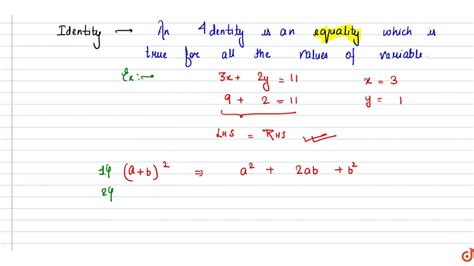 Identity → An Identity is an equality which is
true for all the values of variable.
Ex:→ 3x + 2y = 11 x = 3
9 + 2 = 11 y = 1
LHS = RHS ✓
(a+b)² ⇒ a² + 2ab + b²